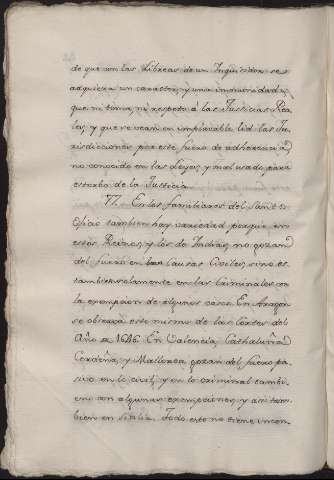 de que con las Libreas de un Inquisidor se
adquiera un caracter, y una inmunidad,
que ni tema, ni respeto à las Justicias Rea
les, y que se vean en implacable lid las Ju
risdicciones por este fuero de adherencia
no conocido en las Leyes, y mal usado para
estorbo de la Justicia
77. En los familiares del Santo
Oficio tambien hay variedad porque en
estos Reinos, y los de Indias, no gozan
del fuero en las Causas Civiles, sino es
tambien solamente en las Criminales con
la excempcion de algunos casos. En Aragon
se observa esto mismo de las Cortes del
Año de 1646. En Valencia, Cathaluña
Cerdeña, y Mallorca gozan del fuero pa
sivo en lo civil, y en lo criminal tambi
en con algunas excepciones, y asi tam
bien en Sicilia. Todo esto no tiene incon